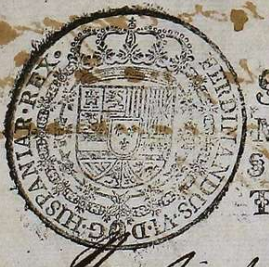 FERDINANDUS·VI·D·G·HISPANIAR·REX·
S